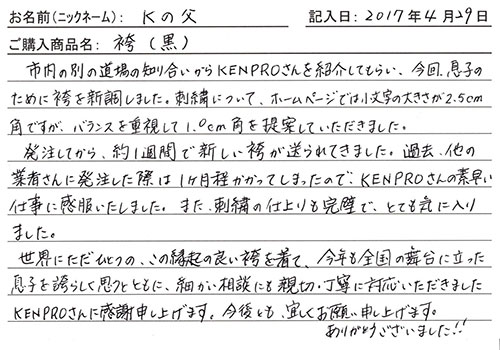 お名前(ニックネーム): Kの父 記入日: 2017年4月29日
ご購入商品名: 袴(黒)
市内の別の道場の知り合いからKENPROさんを紹介してもらい、今回、息子の
ために袴を新調しました。刺繍について、ホームページでは小文字の大きさが2.5cm
角ですが、バランスを重視して1.0cm角を提案していただきました。
発注してから、約1週間で新しい袴が送られてきました。過去、他の
業者さんに発注した際は1ヶ月程かかってしまったので、KENPROさんの素早い
仕事に感服いたしました。また、刺繍の仕上りも完璧で、とても気に入り
ました。
世界にただひとつの、この縁起の良い袴を着て、今年も全国の舞台に立った
息子を誇らしく思うとともに、細かい相談にも親切・丁寧に対応いただきました
KENPROさんに感謝申し上げます。今後とも、宜しくお願い申し上げます。
ありがとうございました!!